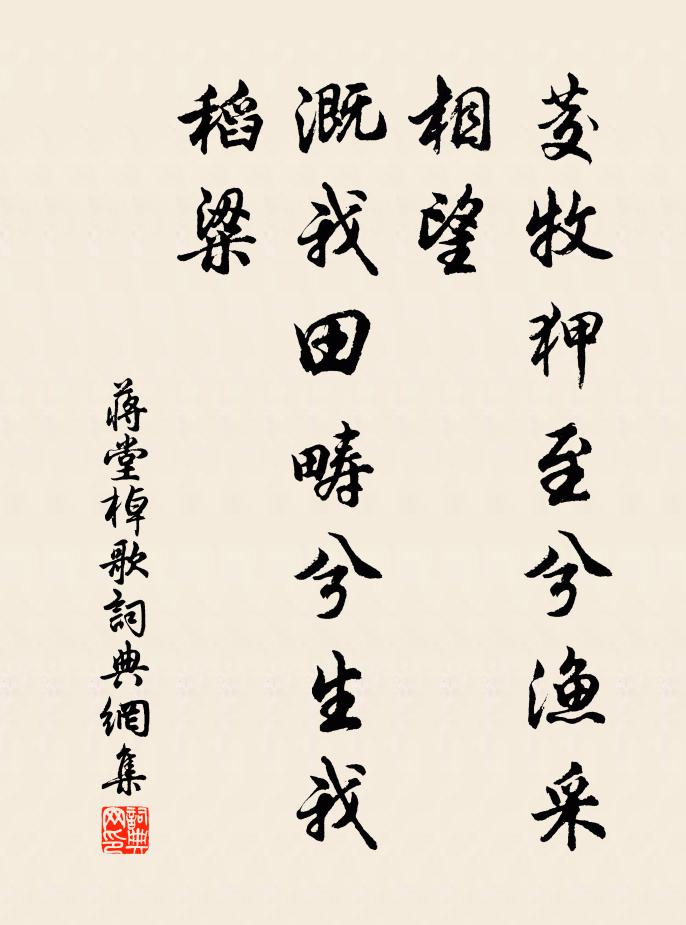 茭牧狎至兮漁采
相望
溉我田疇兮生我
稻粱
蔣堂棹歌詞典網集
詞典网印